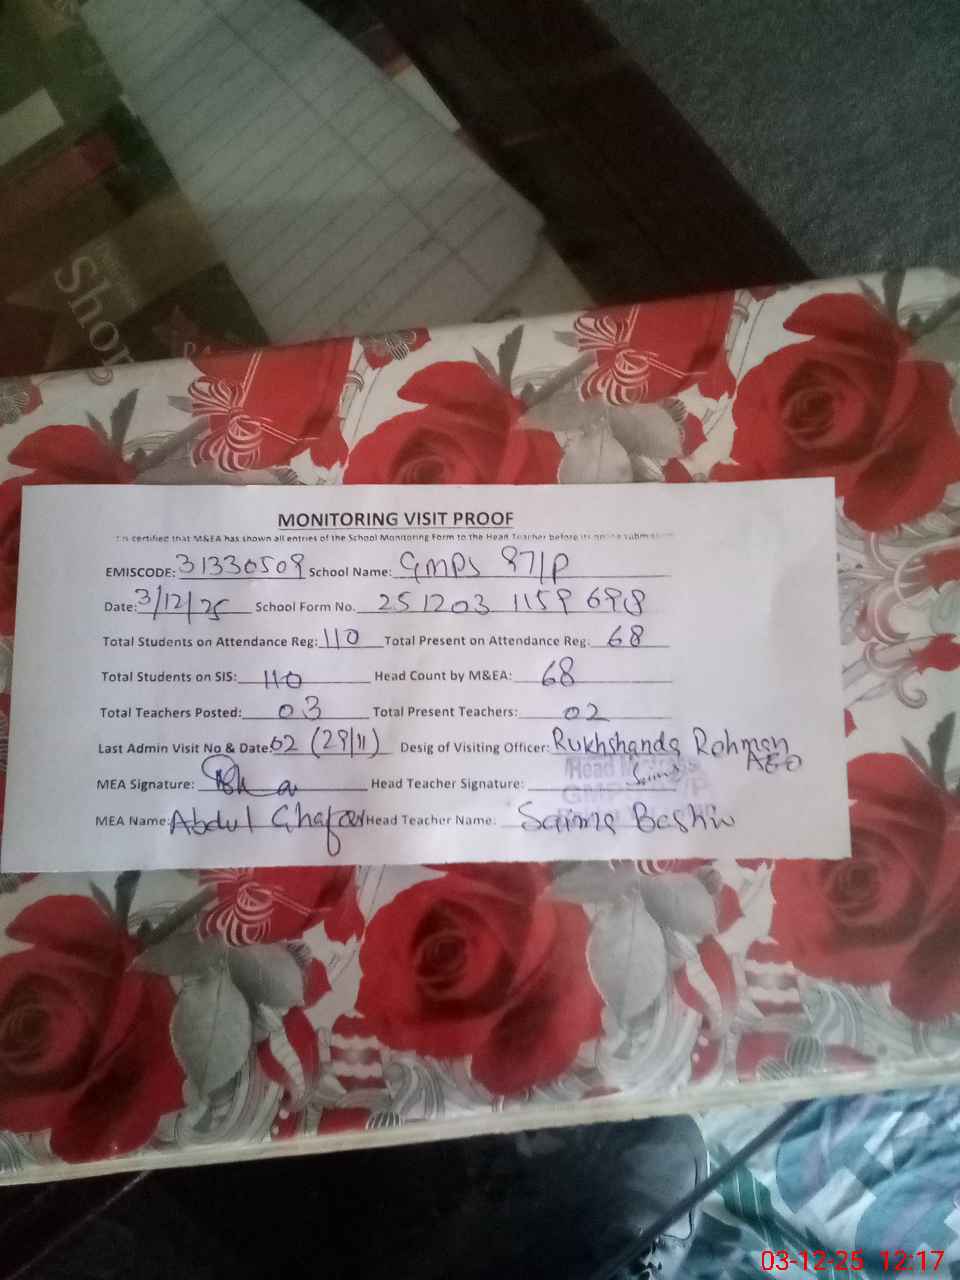 Shop
MONITORING VISIT PROOF
is certified that M&EA has shown all entries of the School Monitoring Form to the Head Teacher before its online submission
EMISCODE: 31330509 School Name: GMPS 87/P
Date: 3/12/25 School Form No. 251203 1159 698
Total Students on Attendance Reg: 110 Total Present on Attendance Reg: 68
Total Students on SIS: 110 Head Count by M&EA: 68
Total Teachers Posted: 03 Total Present Teachers: 02
Last Admin Visit No & Date: 02 (29/11) Desig of Visiting Officer: Rukhshanda Rahman
AEO
MEA Signature: Head Teacher Signature: Saima
Head
GMPS
MEA Name: Abdul Ghafar Head Teacher Name: Saima Bashir
03-12-25 12:17